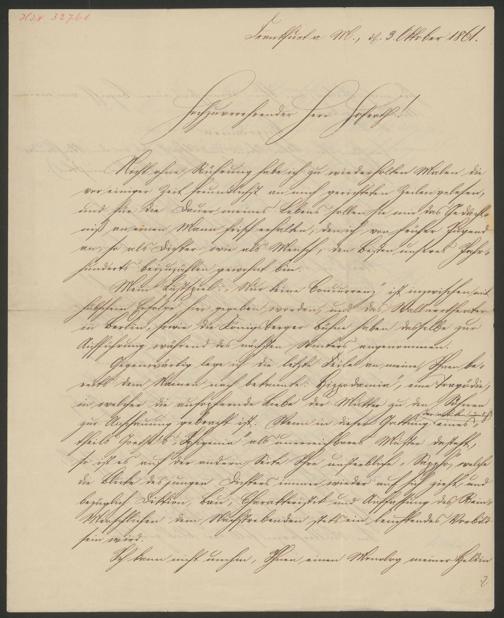 H.I.N. 32761
Frankfurt a M., d. 3. Oktober 1861.
Hochzuverehrender Herr Hofrath!
Nicht ohne Rührung habe ich zu wiederholten Malen die
vor einiger Zeit freundlichst an mich gerichteten Zeilen gelesen,
und für die Dauer meines Lebens sollen sie mir das Gedächt-
niß an einen Mann frisch erhalten, den ich von früher Jugend
an, so als Dichter wie als Mensch, den besten unseres Jahr-
hunderts beizuzählen gewohnt bin.
Mein Lustspiel: "Nur keine Concurrenz" ist inzwischen mit
hübschem Erfolge hier gegeben worden, und das Wallnertheater
in Berlin, sowie die Königsberger Bühne haben dasselbe zur
Aufführung während des nächsten Winters angenommen.
Gegenwärtig lege ich die letzte Feile an meine Ihnen be-
reits dem Namen nach bekannte "Hippodamia", eine Tragödie,
in welcher die aufopfernde Liebe der Mutter zu den Kindern
zur Anschauung gebracht ist. Wenn in dieser Gattung eines-
theils Goethe's "Iphigenia" als unerreichbares Muster dasteht,
so ist es auf der andern Seite Ihre unsterbliche "Sappho", welche
die Blicke des jungen Dichters immer wieder auf sich zieht und
bezüglich Diktion, Bau, Charakteristik und Auffassung des Rein-
Menschlichen dem Nachstrebenden stets ein leuchtendes Vorbild
sein wird.
Ich kann nicht umhin, Ihnen einen Monolog meiner Heldin